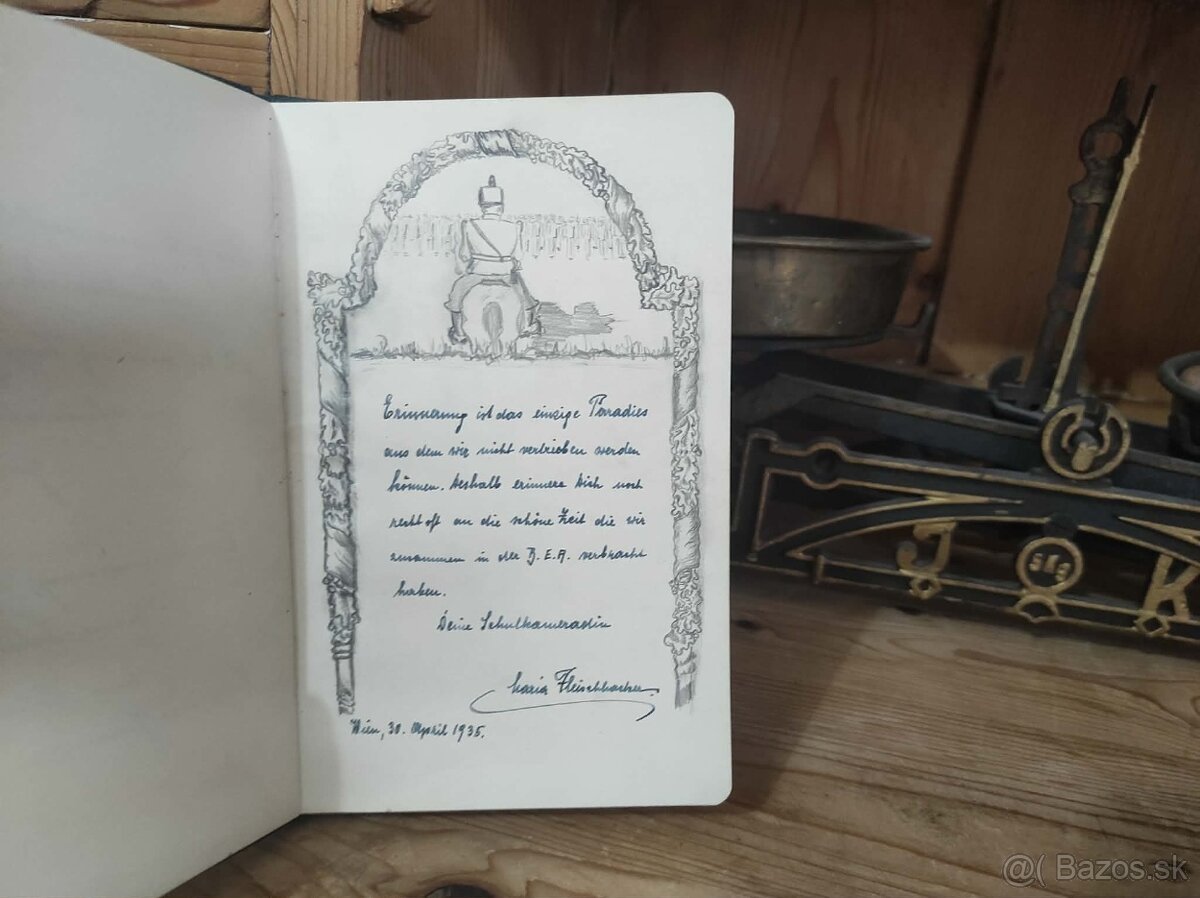 Erinnerung ist das einzige Paradies
aus dem wir nicht vertrieben werden
können. Deshalb erinnere Dich noch
recht oft an die schöne Zeit die wir
zusammen in der B.E.A. verbracht
haben.
Deine Schulkameradin
Maria Fleischhacker
Wien, 30. April 1935.
J 5kg K
@( Bazos.sk